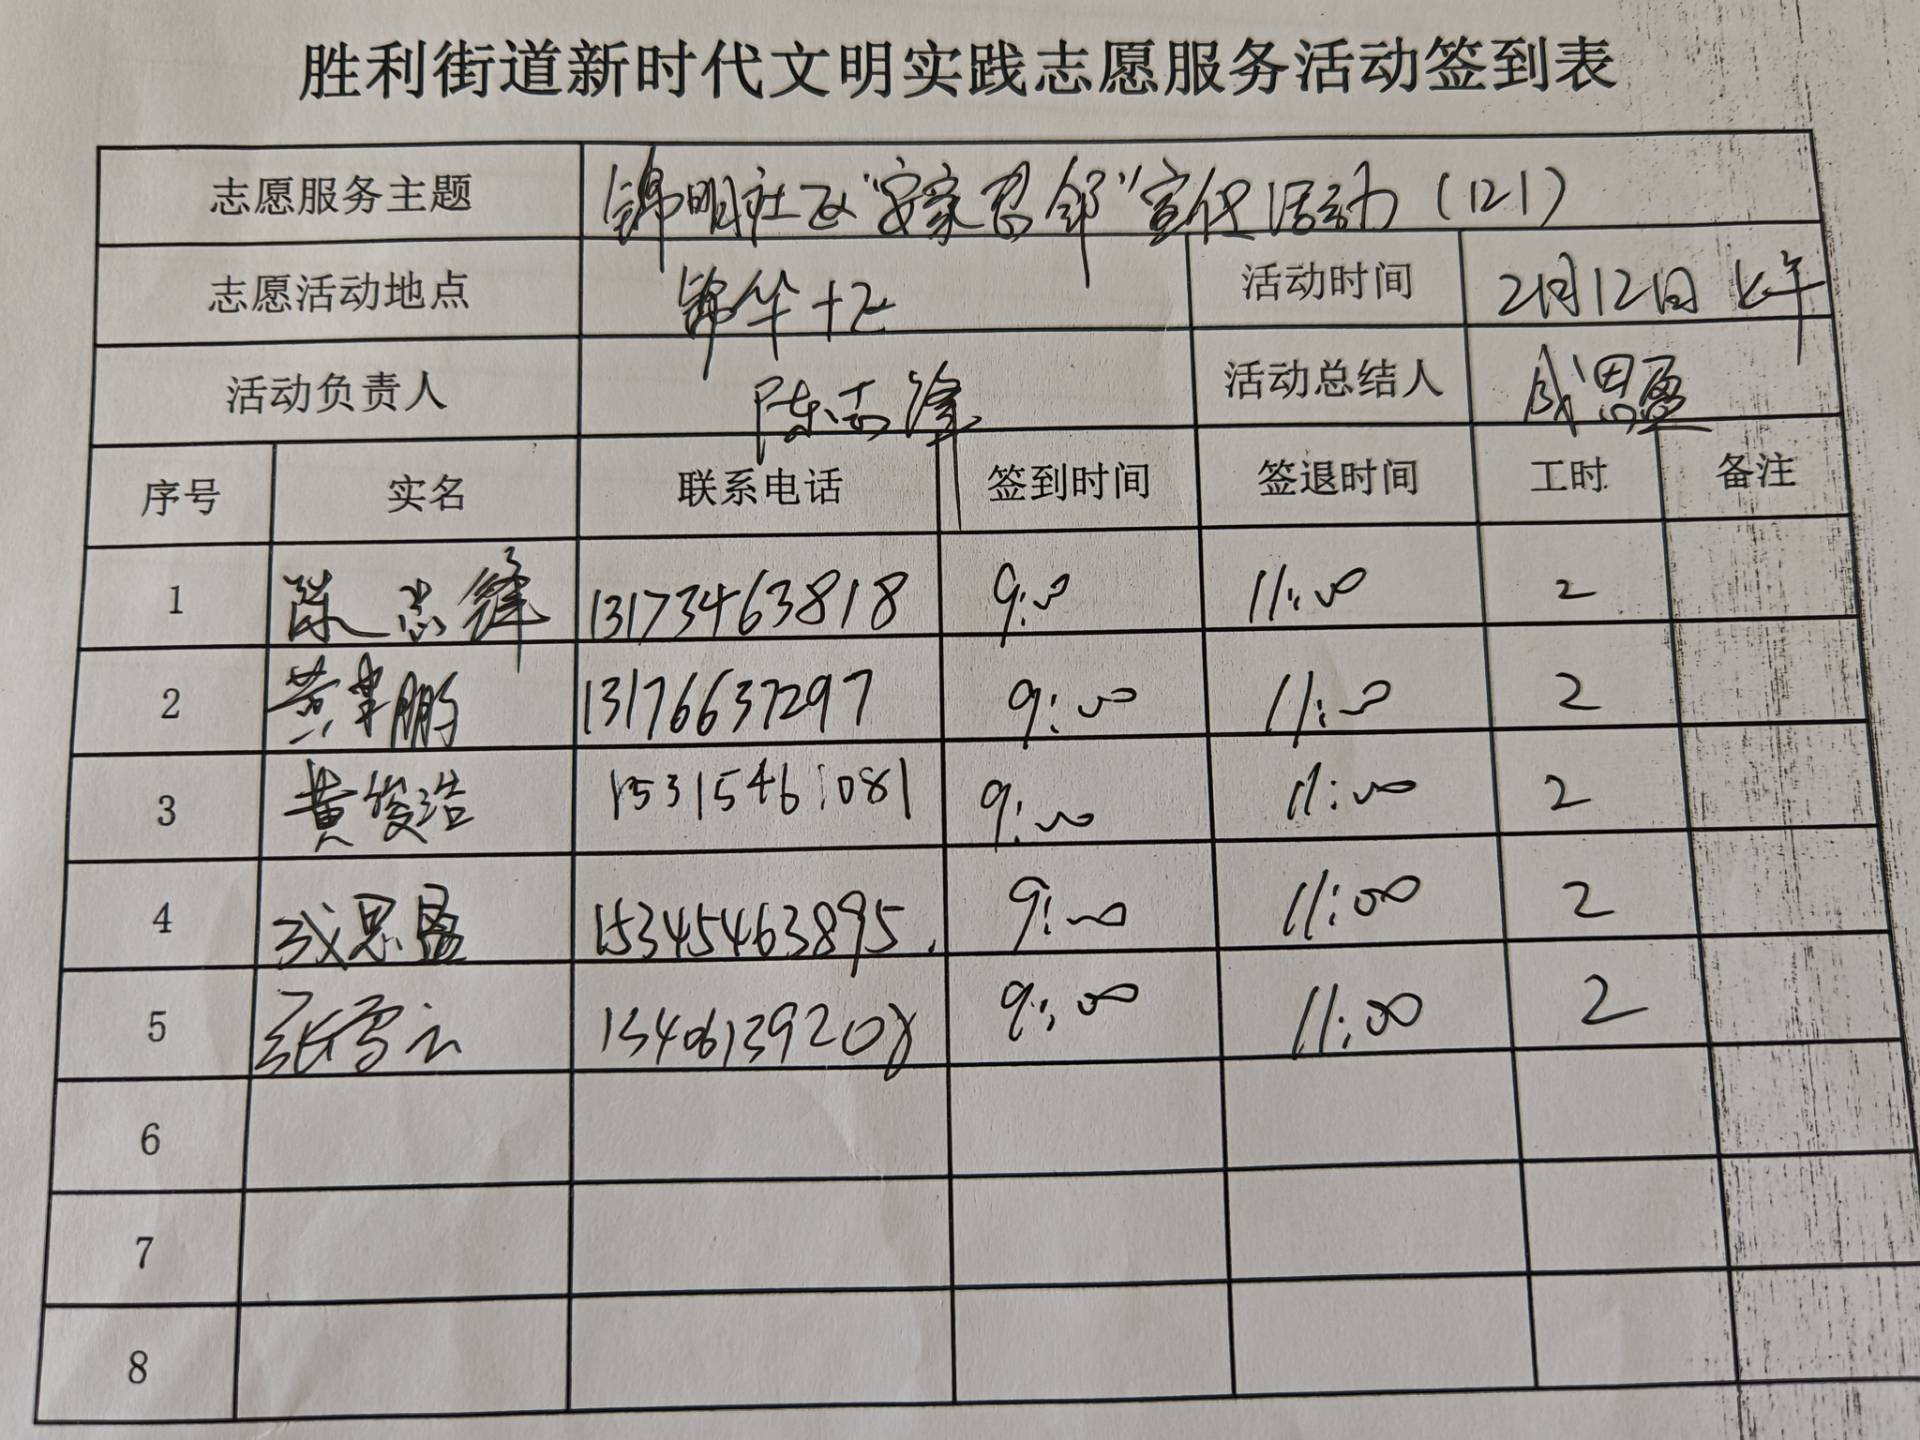 胜利街道新时代文明实践志愿服务活动签到表
志愿服务主题 锦明社区"安家忍邻"宣传活动(121)
志愿活动地点 锦华十区 活动时间 2月12日上午
活动负责人 陈志锋 活动总结人 成思盈
序号 实名 联系电话 签到时间 签退时间 工时 备注
1 陈志锋 13173463818 9:00 11:00 2
2 黄 鹏 13176637297 9:00 11:00 2
3 黄俊浩 15315461081 9:00 11:00 2
4 成思盈 15345463895 9:00 11:00 2
5 张雪云 13406139208 9:00 11:00 2
6
7
8